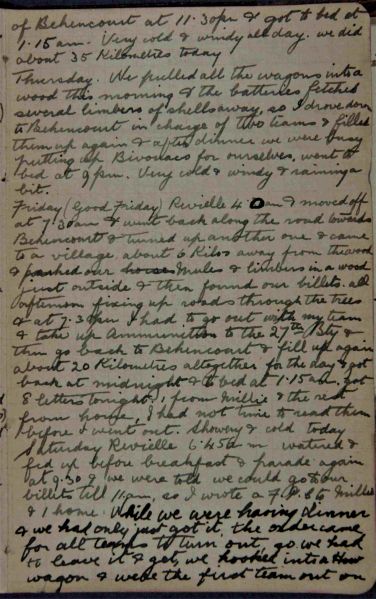 of Behencourt at 11.30pm & got to bed at
1.15 am. Very cold & windy all day. we did
about 35 Kilometres today
Thursday. We pulled all the wagons into a
wood this morning & the batteries fetched
several limbers of shells away, so I drove down
to Behencourt in charge of two teams & filled
them up again & after dinner we were busy
putting up Bivouacs for ourselves, went to
bed at 9pm. Very cold & windy & raining a
bit.
Friday (Good Friday) Revielle 4 0 am & moved off
at 7.30am & went back along the road towards
Behencourt & turned up another one & came
to a village about 6 Kilos away from the wood
& parked our horses mules & limbers in a wood
just outside & then found our billets. all
afternoon fixing up roads through the trees
& at 7.30pm I had to go out with my team
& take up Ammunition to the 27th Bty &
then go back to Behencourt & fill up again
about 20 Kilometres altogether for the day & got
back at midnight & to bed at 1.15am. got
8 letters tonight, 1 from Millie & the rest
from home, I had not time to read them
before I went out. Showery & cold today
Saturday Revielle 6.45 a m watered &
fed up before breakfast & parade again
at 9.30 & we were told we could go to our
billets till 11am, so I wrote a F.P. to Millie
& 1 home. While we were having dinner
& we had only just got it, the order came
for all teams to turn out, so we had
to leave it & get, we hooked into a How
wagon & were the first team out on